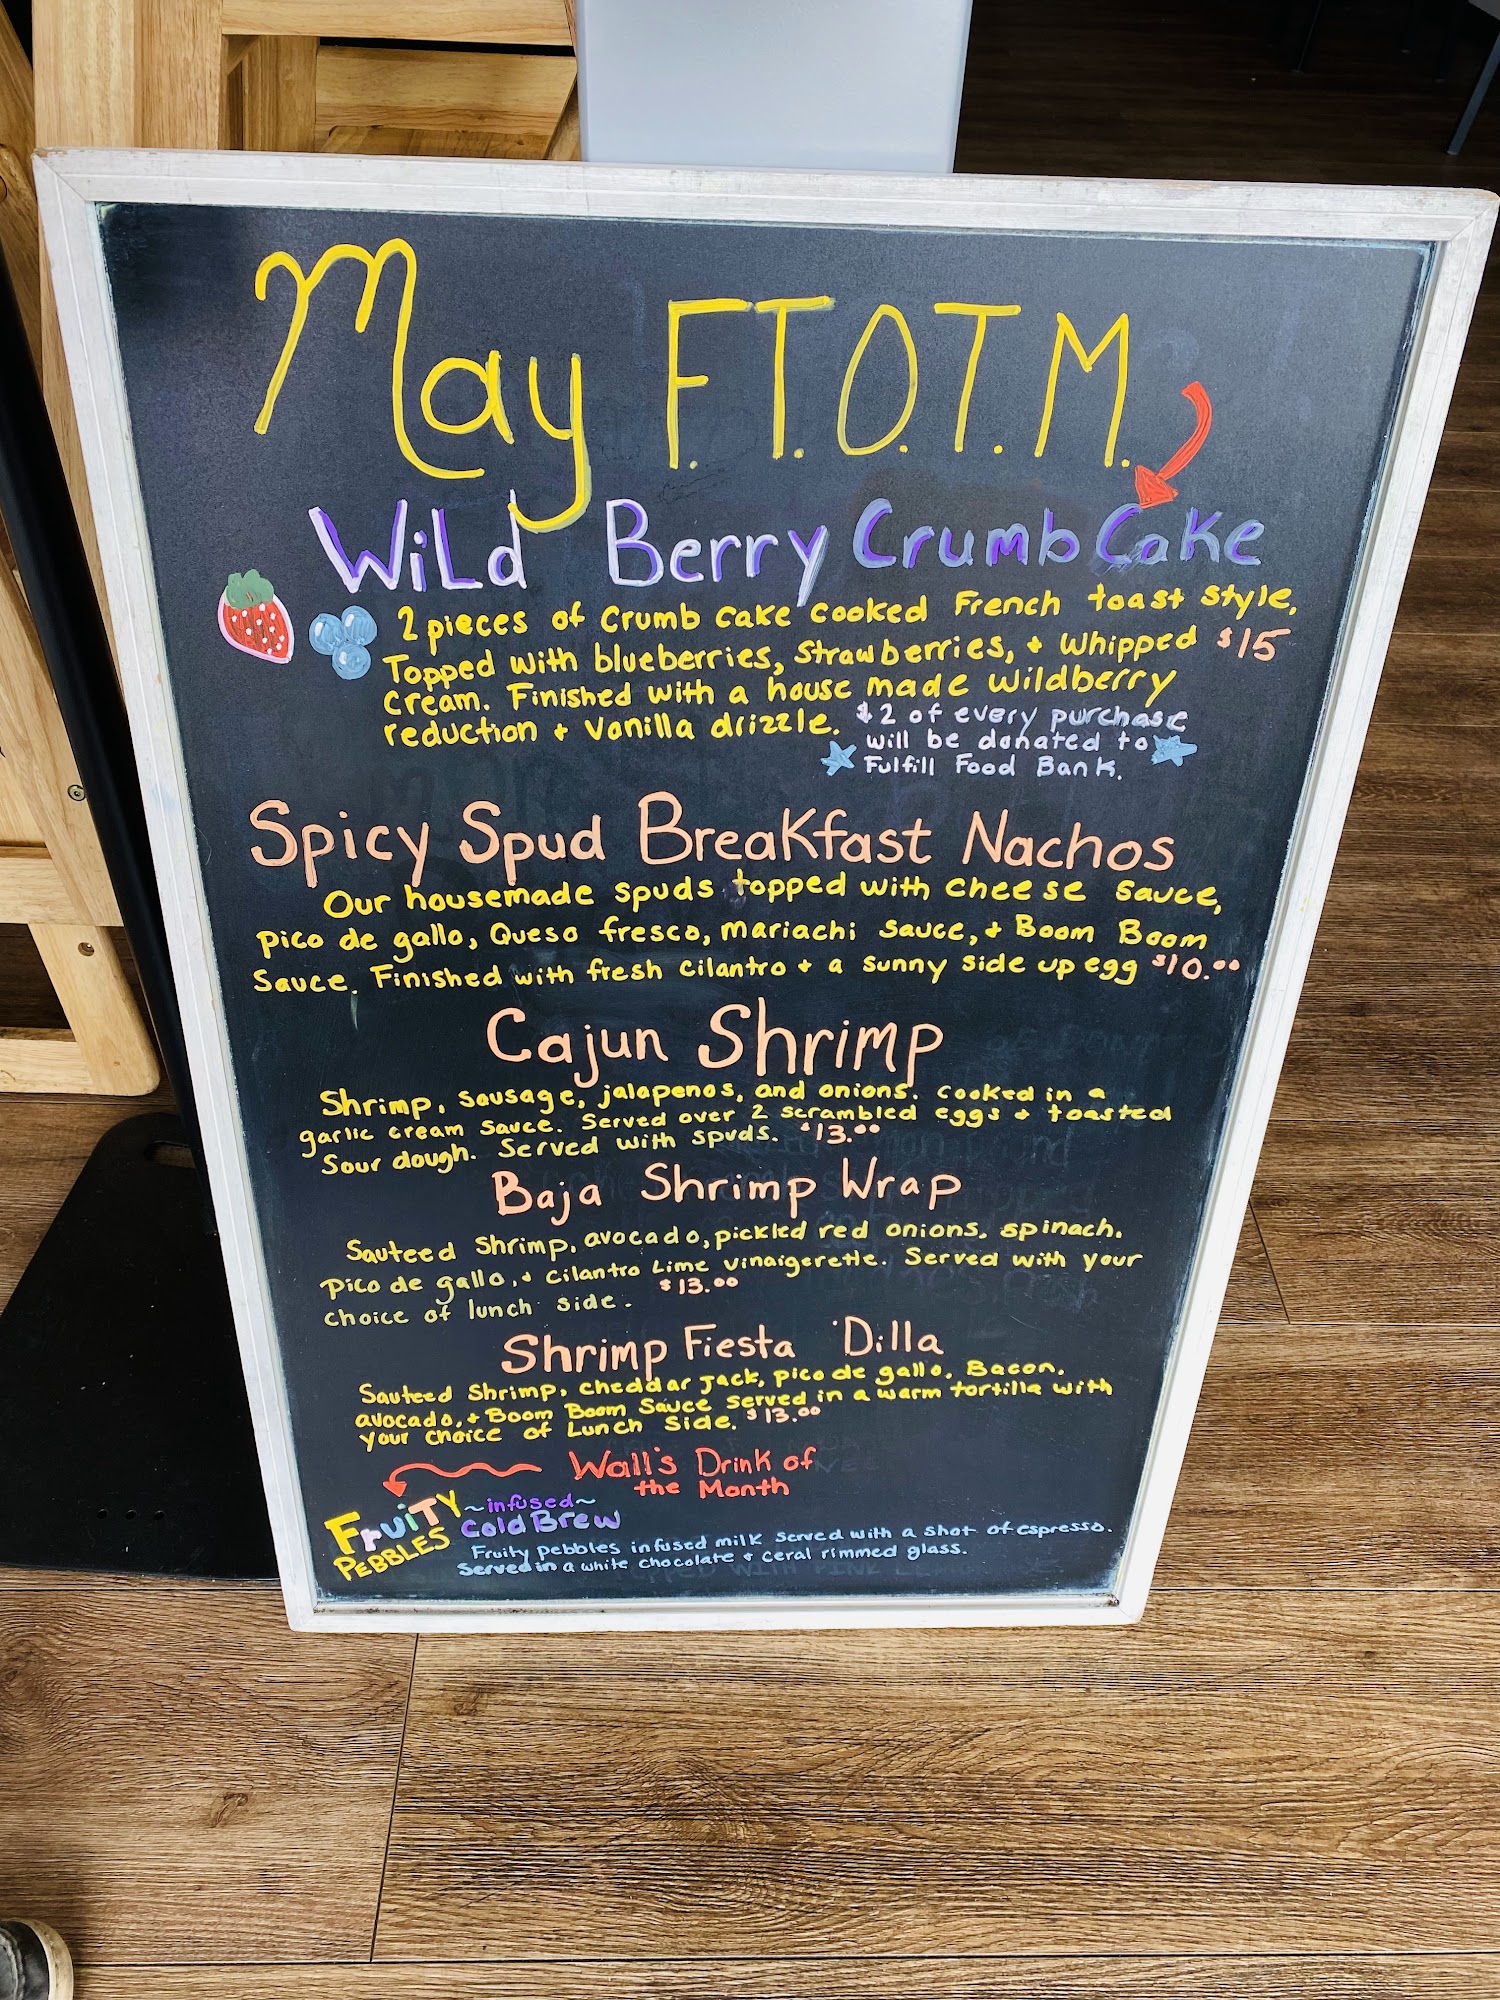 May F.T.O.T.M.
Wild Berry Crumb Cake
2 pieces of crumb cake cooked French toast style,
Topped with blueberries, strawberries, + whipped $15
cream. Finished with a house made wildberry
reduction + vanilla drizzle. $2 of every purchase
will be donated to
Fulfill Food Bank.
Spicy Spud Breakfast Nachos
Our housemade spuds topped with cheese sauce,
pico de gallo, Queso fresco, mariachi sauce, + Boom Boom
Sauce. Finished with fresh cilantro + a sunny side up egg $10.00
Cajun Shrimp
Shrimp, sausage, jalapenos, and onions. cooked in a
garlic cream sauce. Served over 2 scrambled eggs + toasted
Sour dough. Served with spuds. $13.00
Baja Shrimp Wrap
Sauteed Shrimp, avocado, pickled red onions, spinach,
pico de gallo, + cilantro Lime vinaigerette. Served with your
choice of lunch side. $13.00
Shrimp Fiesta 'Dilla
Sauteed Shrimp, cheddar jack, pico de gallo, Bacon,
avocado, + Boom Boom Sauce served in a warm tortilla with
your choice of Lunch Side. $13.00
Wall's Drink of
the Month
FruiTY ~infused~
PEBBLES Cold Brew
Fruity pebbles infused milk served with a shot of espresso.
Served in a white chocolate + ceral rimmed glass.